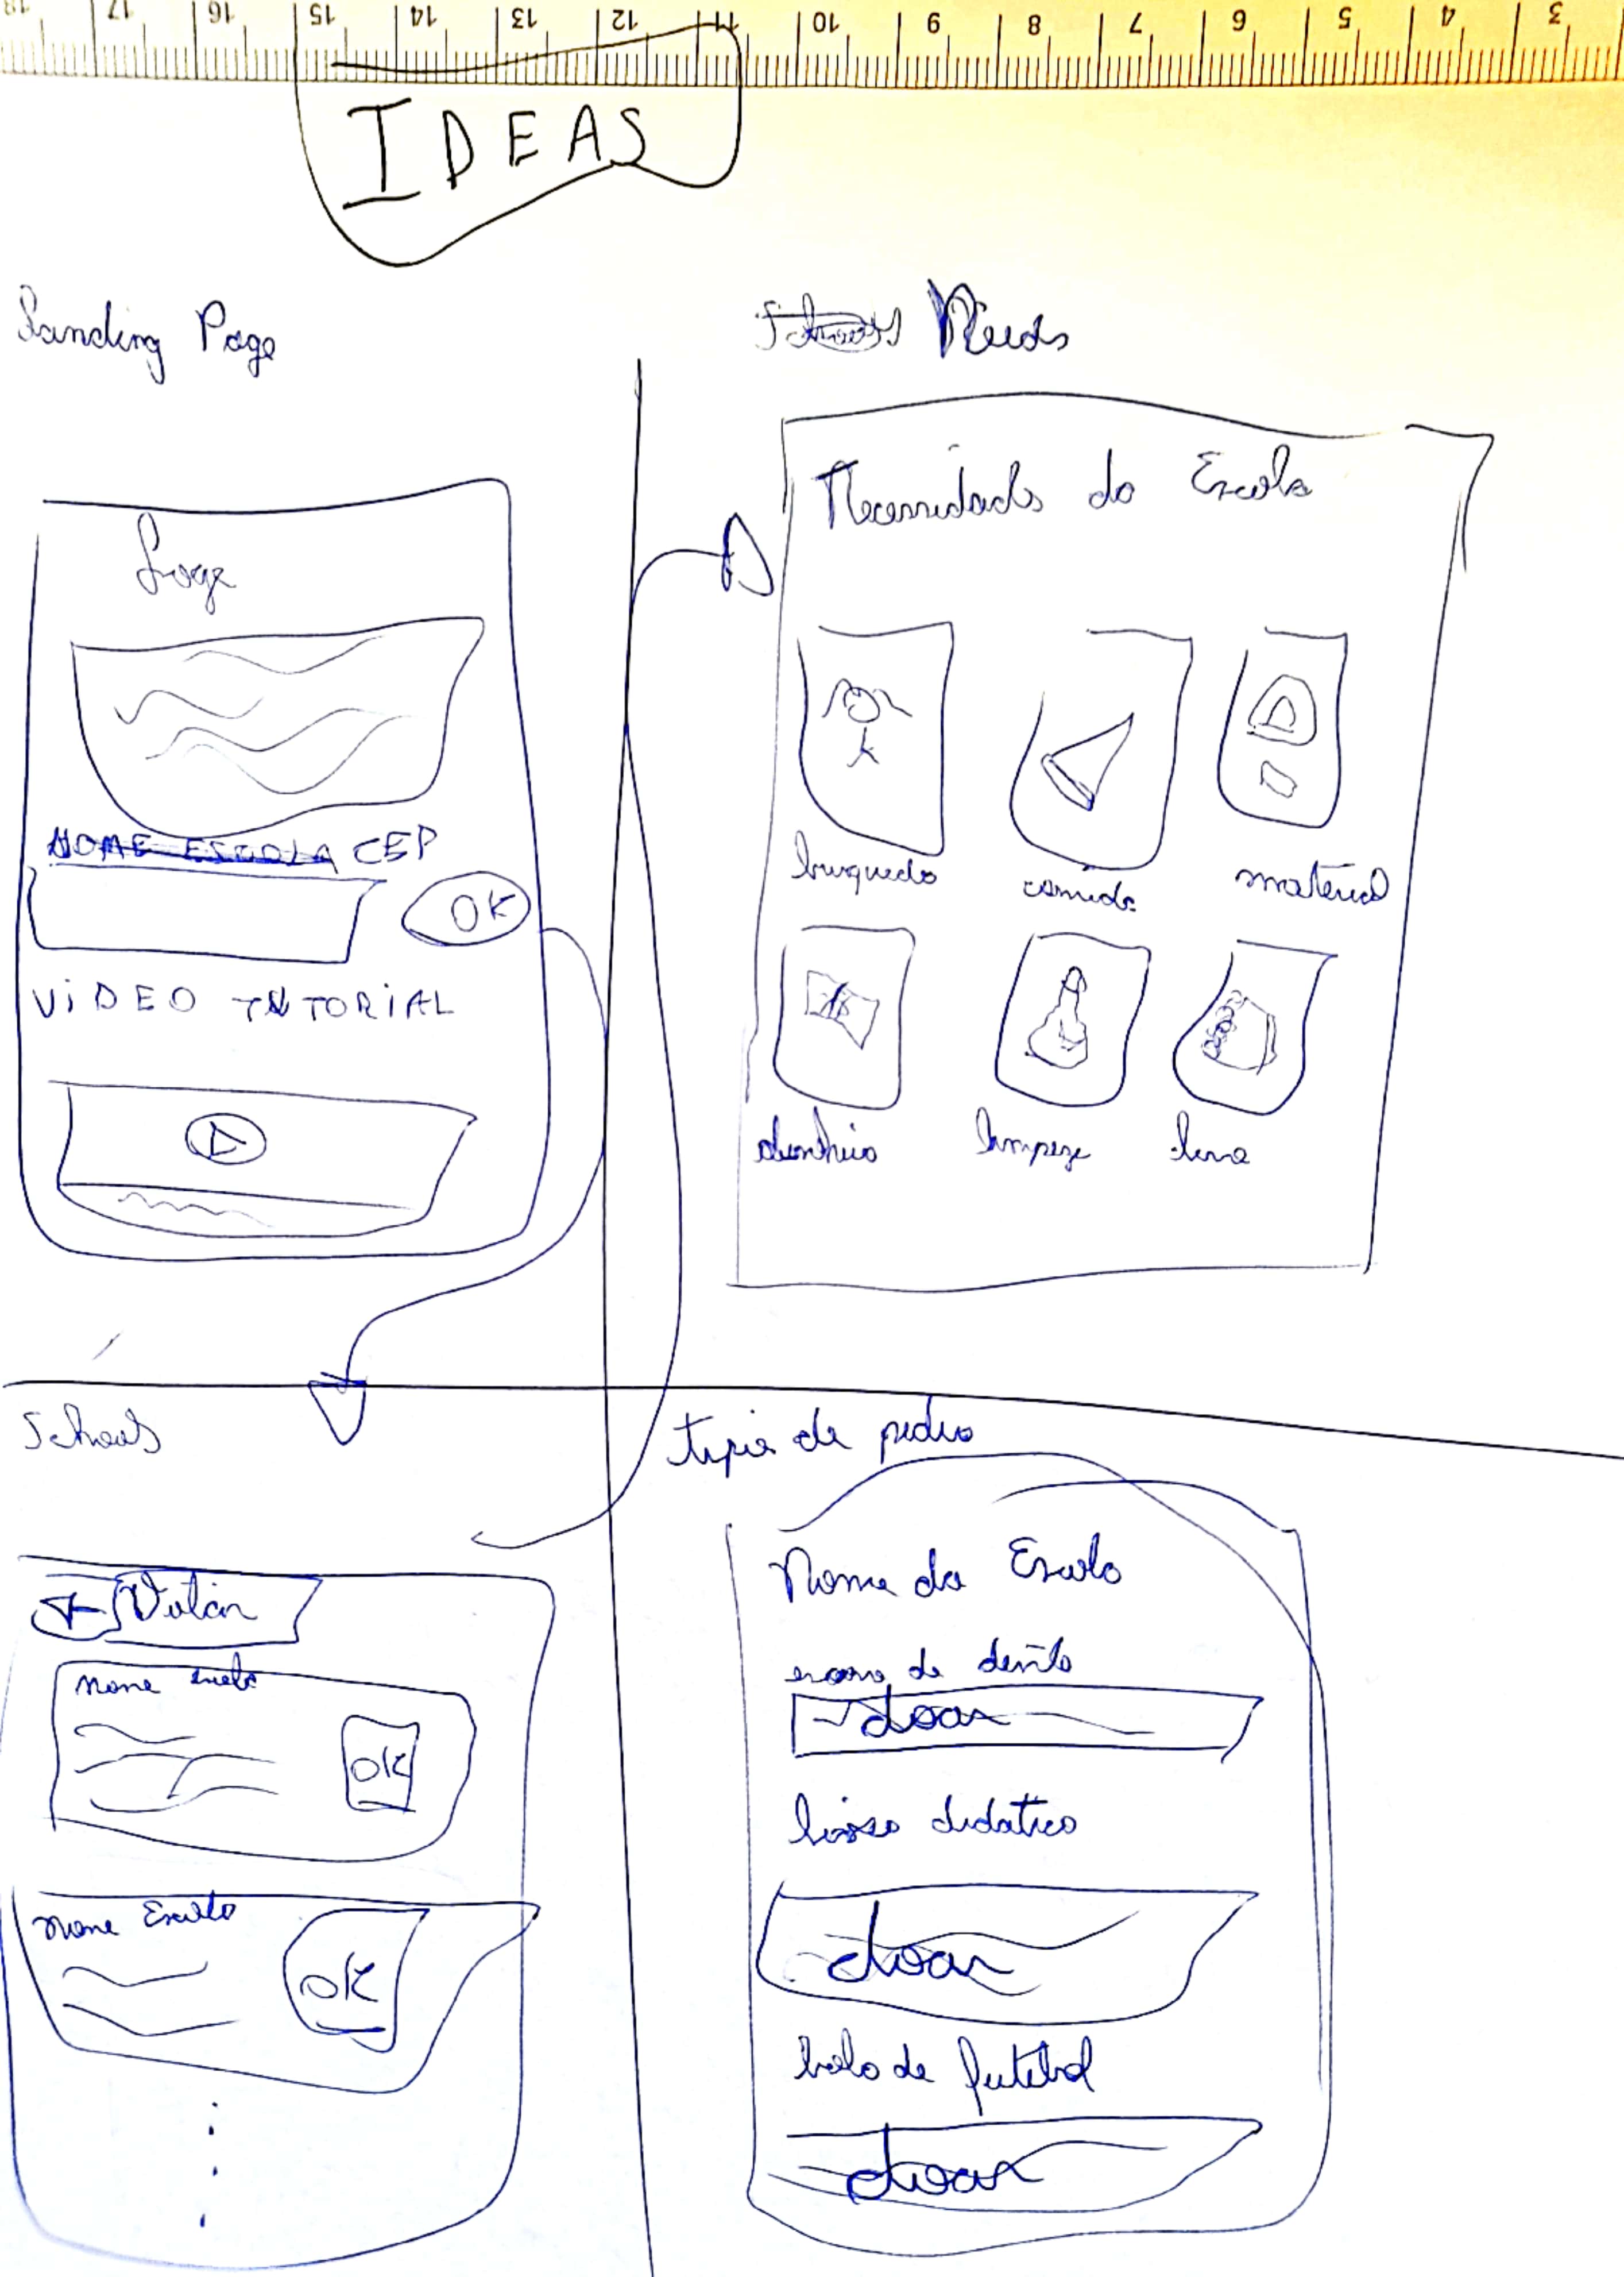 18 17 16 15 14 13 12 11 10 9 8 7 6 5 4 3
IDEAS
Landing Page
Logo
NOME ESCOLA CEP
OK
VIDEO TUTORIAL
Schools Needs
Necessidades da Escola
brinquedo comida material
dinheiro limpeza livro
Schools
Voltar
nome escola
OK
nome Escola
OK
de pedido
Nome da Escola
escova de dente
doar
livro didatico
doar
bola de futebol
doar